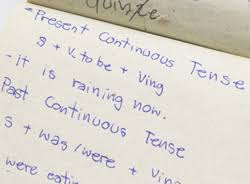 - Present Continuous Tense
S + V. to be + Ving
- it is raining now.
Past Continuous Tense
S + was/were + Ving
were eatin